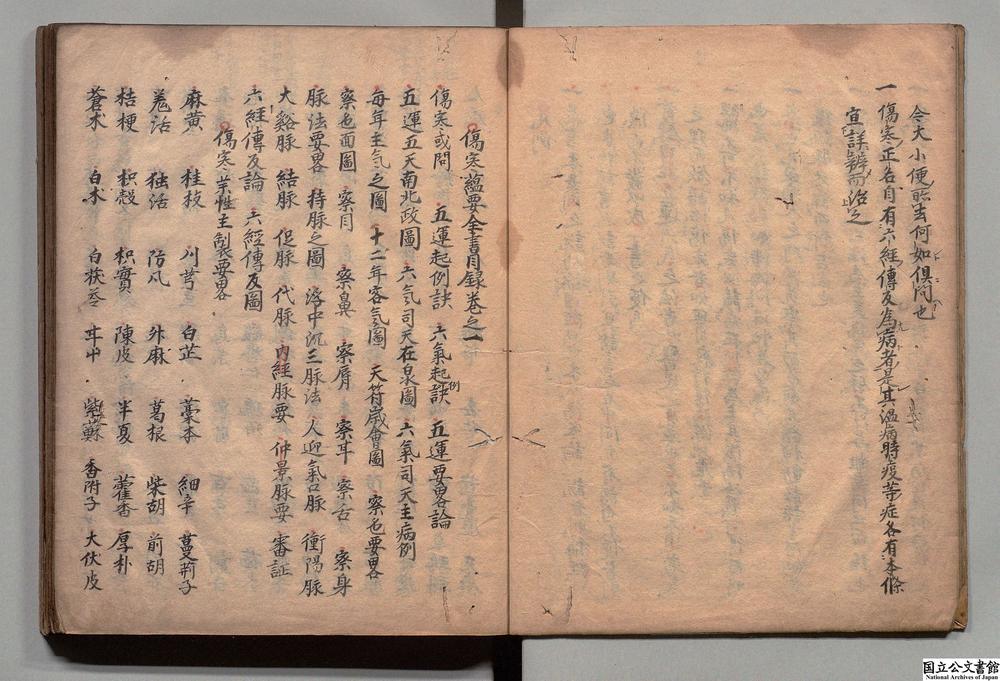 今大小便㪽去何如俱问也
一傷寒正名自有六經傳变為病者是其温病時疫等症各有本條
宜詳辨而治之
傷寒蘊要全書目録卷之一
傷寒或問 五運起例訣 六氣起例訣 五運要畧論
五運五天南北政圖 六氣司天在泉圖 六氣司天主病例
每年主气之圖 十二年客气圖 天符歲會圖 察色要畧
察色面圖 察目 察鼻 察脣 察耳 察舌 察身
脉法要畧 持脉之圖 浮中沉三脉法 人迎氣口脉 衝陽脉
大谿脉 結脉 促脉 代脉 内經脉要 仲景脉要 審証
六經傳变論 六經傳变圖
傷寒藥性主制要畧
麻黄 桂枝 川芎 白芷 藁本 細辛 蔓荊子
羌活 独活 防风 升麻 葛根 柴胡 前胡
桔梗 枳殼 枳實 陳皮 半夏 藿香 厚朴
蒼朮 白朮 白茯苓 甘艸 紫蘇 香附子 大伏皮
国立公文書館
National Archives of Japan